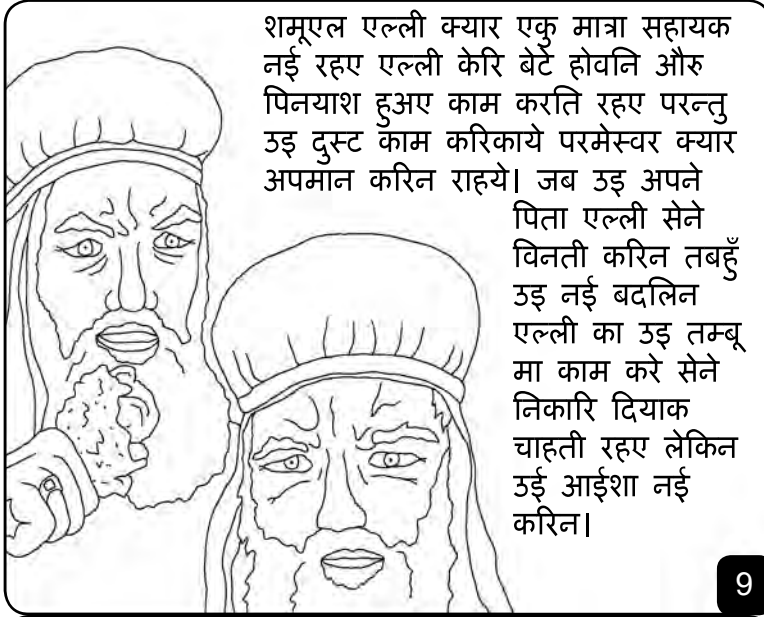 शमूएल एल्ली क्यार एकु मात्रा सहायक
नई रहए एल्ली केरि बेटे होवनि औरु
पिनयाश हुअए काम करति रहए परन्तु
उइ दुस्ट काम करिकाये परमेस्वर क्यार
अपमान करिन राहये| जब उइ अपने
पिता एल्ली सेने
विनती करिन तबहुँ
उइ नई बदलिन
एल्ली का उइ तम्बू
मा काम करे सेने
निकारि दियाक
चाहती रहए लेकिन
उई आईशा नई
करिन|
9